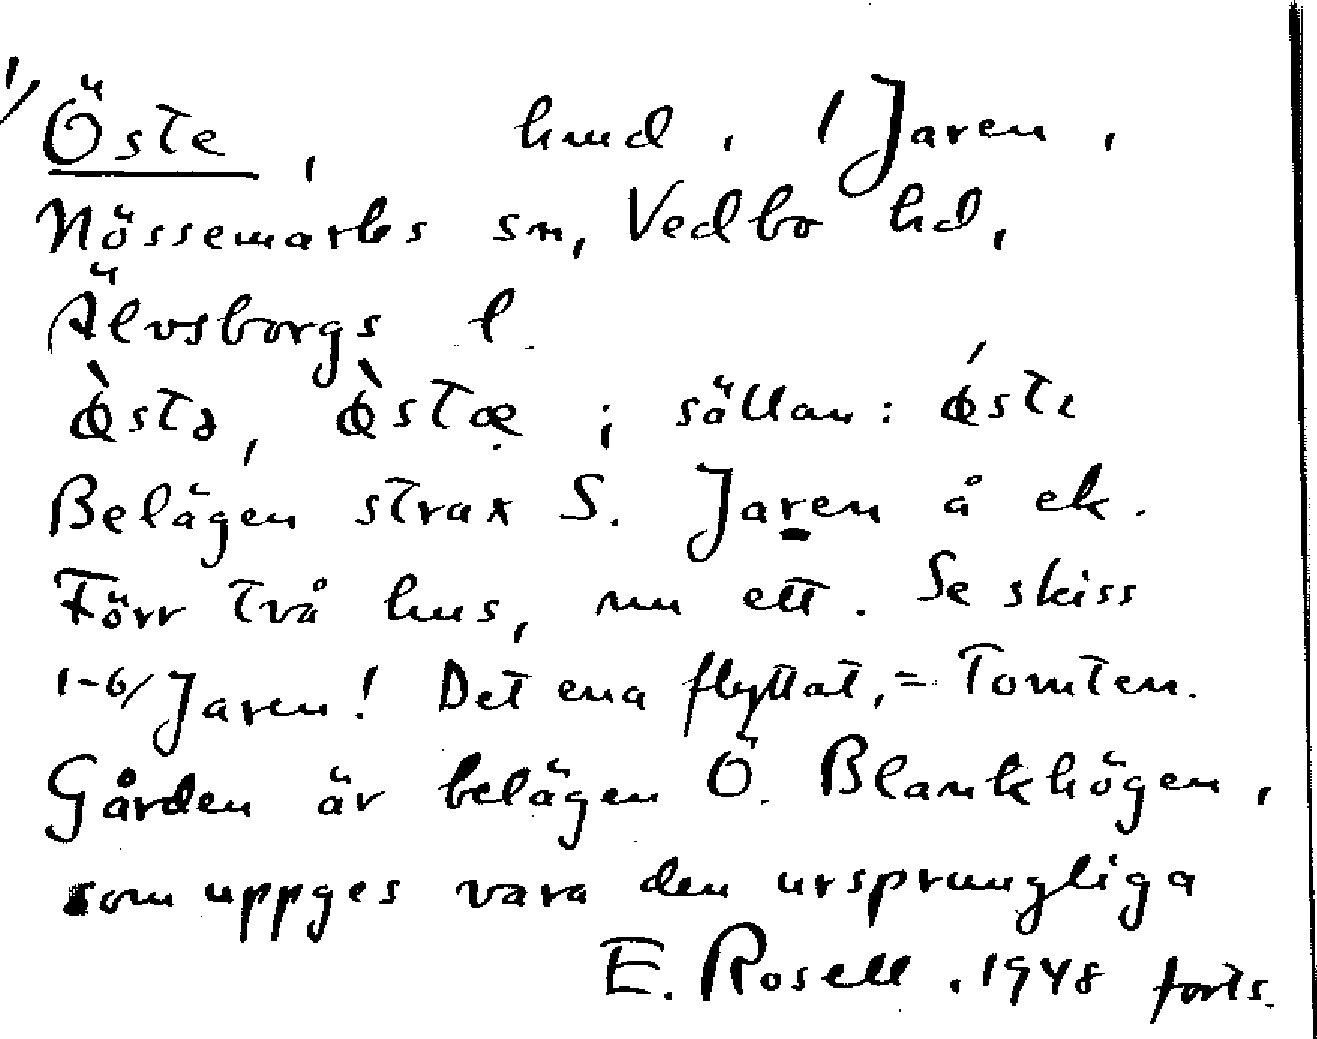 1/ Öste, hmd, 1 Jaren,
Nössemarks sn, Vedbo hd,
Älvsborgs l.
ǿ̀stə, ǿ̀stæ; sällan: ǿsti
Belägen strax S. Jaren å ek.
Förr två hus, nu ett. Se skiss
1-6/ Jaren! Det ena flyttat, = Tomten.
Gården är belägen Ö. Blankhögen,
som uppges vara den ursprungliga
E. Rosell. 1948 forts.